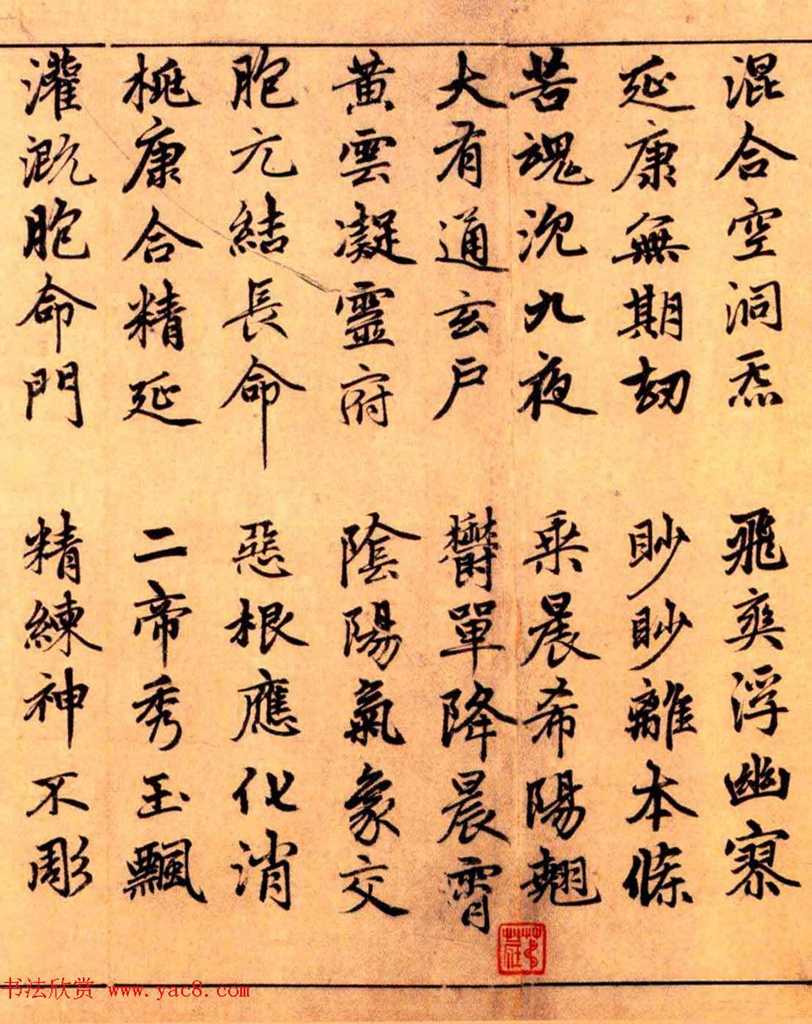 混合空洞炁 飛爽浮幽寥
延康無期劫 眇眇離本條
苦魂沉九夜 乘晨希陽翹
大有通玄戶 鬱單降晨霄
黃雲凝靈府 陰陽氣象交
胞元結長命 惡根應化消
桃康合精延 二帝秀玉飄
灌溉胞命門 精練神不彫
书法欣赏 www.yac8.com